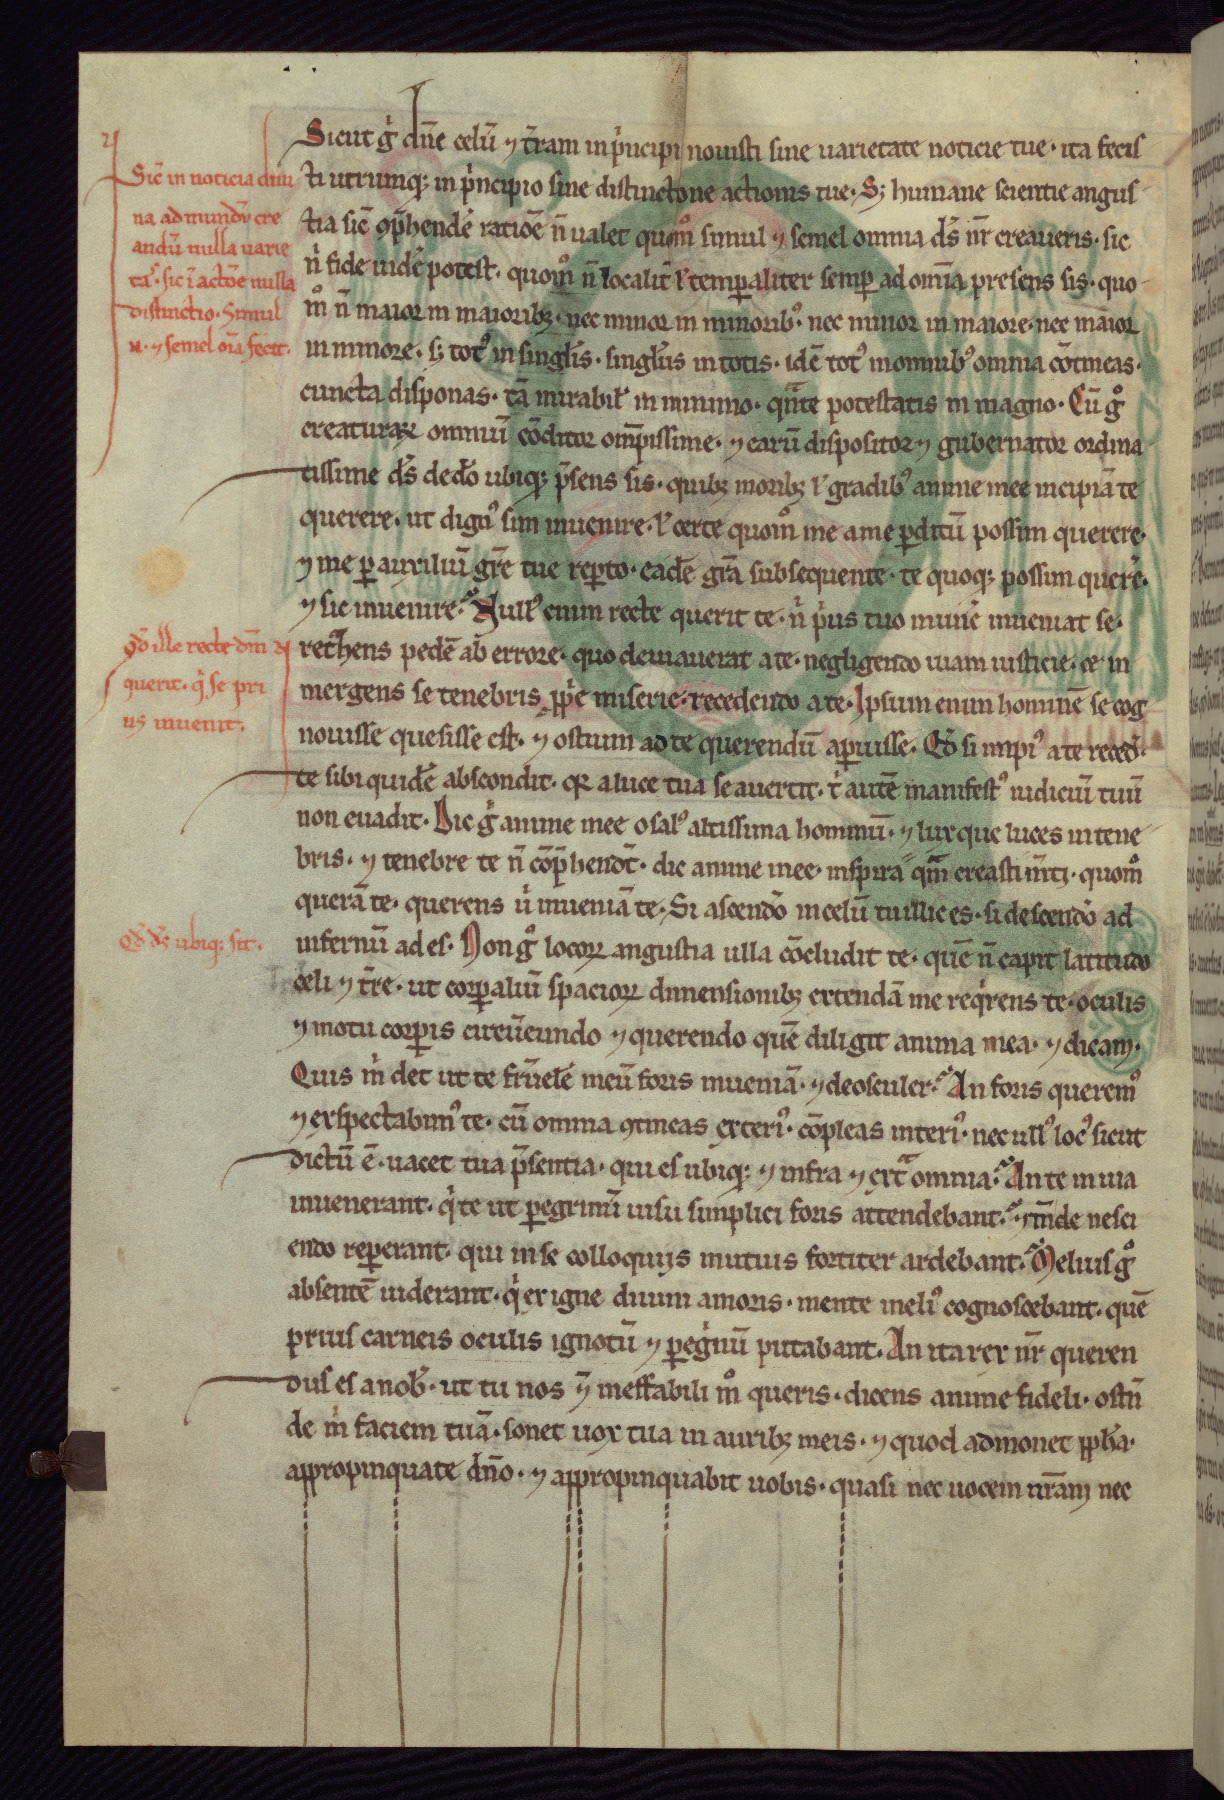 Sicut g̊ dñe celū ⁊ t̄ram in p̍ncipi nouisti sine uarietate noticie tue · ita fecis
ti utrumq; in p̍ncipio sine distinctone actionis tue · S; humane scientie angus
tia sic̄ ꝯp̄hendē ratiōe n̄ ualet quom̊ simul ⁊ semel omnia d̄s nr̄ creaueris · sic
n̍ fide uidē potest · quom̊ n̄ localit̄ ł temꝑaliter semꝑ ad om̄ia presens sis · quo
m̊ n̄ maior in maiorib; · nec minor in minorib᾽ · nec minor in maiore · nec maior
in minore · s; tot᾽ in singlis̄ · singlis̄ in totis · idē tot᾽ in omnib᾽ omnia cōtineas ·
cuncta disponas · tā mirabil᾽ in minimo · qn̄te potestatis in magno · Cū g̊
creaturaꝝ omniū cōditor omp̄issime · ⁊ earū dispositor ⁊ gubernator ordina
tissime d̄s de dō ubiq; p̄sens sis · quib; morib; ł gradib᾽ anime mee incipiā te
querere · ut dign᾽ sim inuenire · ł certe quom̊ me a me ꝑditū possim querere ·
⁊ me ꝑ auxiliū gr̄e tue reꝑto · eadē gr̄a subsequente · te quoq; possim querē ·
⁊ sic inuenire · Null᾽ enim recte querit te · n̍ p̍us tuo munē inueniat se ·
rethens pedē ab errore · quo deuiauerat a te · negligendo uiam iusticie · & in
mergens se tenebris ꝓp̍e miserie · recedendo a te · Ipsum enim hominē se cog
nouisse quesisse est · ⁊ ostium ad te querendū aꝑuisse · Qd̄ si impi᾽ a te reced̄ ·
te sibi quidē abscondit · qꝛ a luce tua se auertit · t̍ autē manifest᾽ iudiciū tuū
non euadit · Dic g̊ anime mee o sal᾽ altissima hominū · ⁊ lux que luces in tene
bris · ⁊ tenebre te n̄ cōp̄hendt̄ · dic anime mee · inspira qm̄ creasti · quom̊
querā te · querens u̍ inueniā te · Si ascendo in celū tu illic es · si descendo ad
infernū ad es · Non g̊ locoꝝ angustia ulla cōcludit te · quē n̄ capit latitudo
celi ⁊ t̄re · ut corꝑaliū spacioꝝ dimensionib; extendā me req̍rens te · oculis
⁊ motu corꝑis circūeundo ⁊ querendo quē diligit anima mea · ⁊ dicam ·
Quis m̍ det ut te fr̄uelē meū foris inueniā · ⁊ deosculer · An foris querem᾽
⁊ exspectabim᾽ te · cū omnia ꝯtineas exteri᾽ · cōpleas interi᾽ · nec ull᾽ loc᾽ sicut
dictū ē · uacet tua p̄sentia · qui es ubiq; ⁊ infra ⁊ ext̄ omnia · An te in uia
inuenerant · q̍ te ut ꝑegrinū uisu simplici foris attendebant · ⁊ inde nesci
endo reꝑerant · qui in se colloquiis mutuis fortiter ardebant · Melius g̊
absentē uiderant · q̍ ex igne diuini amoris · mente meli᾽ cognoscebant · quē
prius carneis oculis ignotū ⁊ ꝑeg̍nū putabant · An ita rex nr̄ queren
dus es a nob̄ · ut tu nos ⁊̄ ineffabili m̊ queris · dicens anime fideli · ostn̄
de m̍ faciem tuā · sonet uox tua in aurib; meis · ⁊ quod admonet ꝓph̄a ·
appropinquate dño · ⁊ appropinquabit uobis · quasi nec uocem nr̄am nec
Sic̄ in noticia diui
na ad mundū cre
andū nulla uarie
tas · sic ī actōe nulla
distinctio · Simul
n̄ · ⁊ semel oīa fecit ·
qd̄ ille recte dm̄
querit · q̍ se pri
us inuenit ·
Qd̄ d̄s ubiq; sit ·